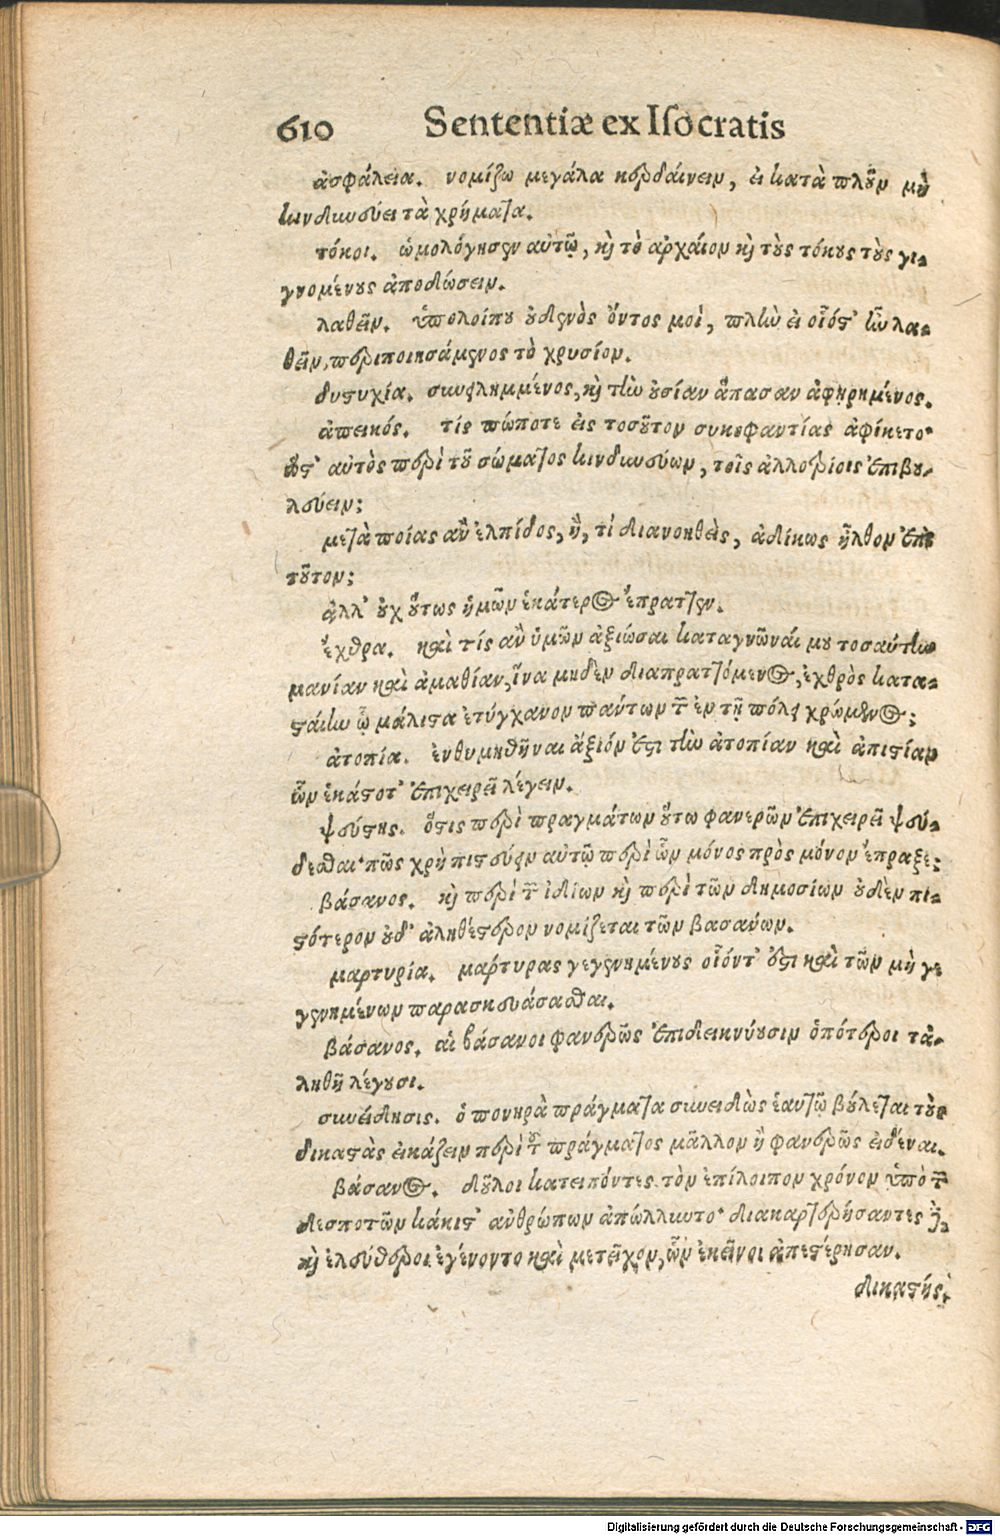 610 Sententiæ ex Isocratis
ἀσφάλεια. νομίζω μεγάλα κερδαίνειν, εἰ κατὰ πλοῦν μὴ
κινδυνεύει τὰ χρήματα.
τόκοι. ὡμολόγησεν αὐτῷ, καὶ τὸ ἀρχαῖον καὶ τοὺς τόκους τοὺς γι-
γνομένους ἀποδώσειν.
λαθεῖν. ὑπολοίπου οὐδενὸς ὄντος μοὶ, πλὴν εἰ οἷόςτ' ἦν λα-
θεῖν, περιποιησάμενος τὸ χρυσίον.
δυστυχία. συνειλημμένος, καὶ τὴν οὐσίαν ἅπασαν ἀφῃρημένος.
ἀπεικός. τίς πώποτε εἰς τοσοῦτον συκοφαντίας ἀφίκετο·
ὥστ' αὐτὸς περὶ τοῦ σώματος κινδυνεύων, τοῖς ἀλλοτρίοις ἐπιβου-
λεύειν;
μετὰ ποίας ἂν ἐλπίδος, ἢ, τί διανοηθεὶς, ἀδίκως ἦλθον ἐπὶ
τοῦτον;
ἀλλ' οὐχ οὕτως ἡμῶν ἑκάτερος ἔπραττεν.
ἔχθρα. καὶ τίς ἂν ὑμῶν ἀξιώσαι καταγνῶναί μου τοσαύτην
μανίαν καὶ ἀμαθίαν, ἵνα μηδὲν διαπραττόμενος, ἐχθρὸς κατα-
σταίην ᾧ μάλιστα ἐτύγχανον πάντων τῶν ἐν τῇ πόλει χρώμενος;
ἀτοπία. ἐνθυμηθῆναι ἄξιόν ἐστι τὴν ἀτοπίαν καὶ ἀπιστίαν
ὧν ἑκάστοτ' ἐπιχειρεῖ λέγειν.
ψεύστης. ὅστις περὶ πραγμάτων οὕτω φανερῶν ἐπιχειρεῖ ψεύ-
δεσθαι· πῶς χρὴ πιστεύειν αὐτῷ περὶ ὧν μόνος πρὸς μόνον ἔπραξε;
βάσανος. καὶ περὶ τῶν ἰδίων καὶ περὶ τῶν δημοσίων οὐδὲν πι-
στότερον οὐδ' ἀληθέστερον νομίζεται τῶν βασάνων.
μαρτυρία. μάρτυρας γεγενημένους οἷόντ' ἐστι καὶ τῶν μὴ γε
γενημένων παρασκευάσασθαι.
βάσανος. αἱ βάσανοι φανερῶς ἐπιδεικνύουσιν ὁπότεροι τἀ-
ληθῆ λέγουσι.
συνείδησις. ὁ πονηρὰ πράγματα συνειδὼς ἑαυτῷ βούλεται τοὺς
δικαστὰς εἰκάζειν περὶ τοῦ πράγματος μᾶλλον ἢ φανερῶς εἰδέναι.
βάσανος. δοῦλοι κατειπόντες τὸν ἐπίλοιπον χρόνον ὑπὸ τῶν
δεσποτῶν κάκιστ' ἀνθρώπων ἀπώλλυντο· διακαρτερήσαντες δὲ,
καὶ ἐλεύθεροι ἐγένοντο καὶ μετεῖχον, ὧν ἐκεῖνοι ἀπεστέρησαν.
δικαστής.
Digitalisierung gefördert durch die Deutsche Forschungsgemeinschaft - DFG